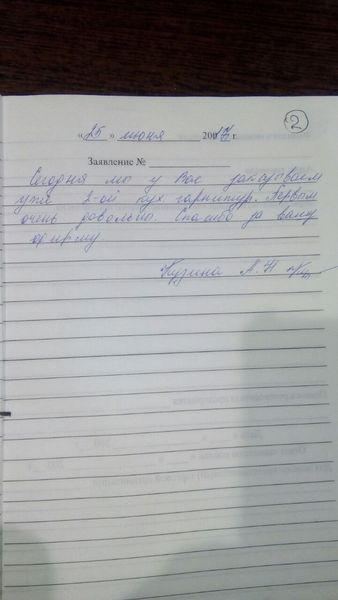 2
« 25 » июня 2017 г.
Заявление №
Сегодня мы у Вас заказываем
уже 2-ой кух. гарнитур. Первым
очень довольны. Спасибо за вашу
фирму
Кузина А.Н